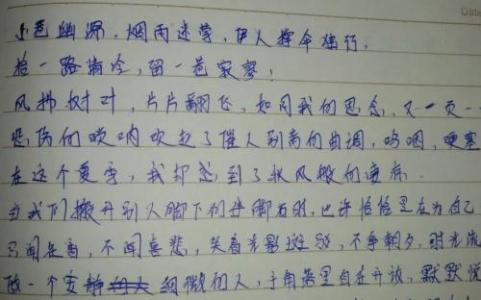 小巷幽深，烟雨迷蒙，伊人撑伞独行，
拾一路清冷，留一巷寂寥，
风拂树叶，片片翻飞，如同我的思念，又一页一
悲伤的唢呐吹起了催人别离的曲调，呜咽，哽塞
在这个夏季，我却感到了秋风般的凄凉
当我们搬开别人脚下的绊脚石时，也许恰恰是在为自己
闲在看，不闻喜悲，笑看光影斑驳，不争朝夕，时光流
做一个安静细微的人，于角落里自在开放，默默悦
Date